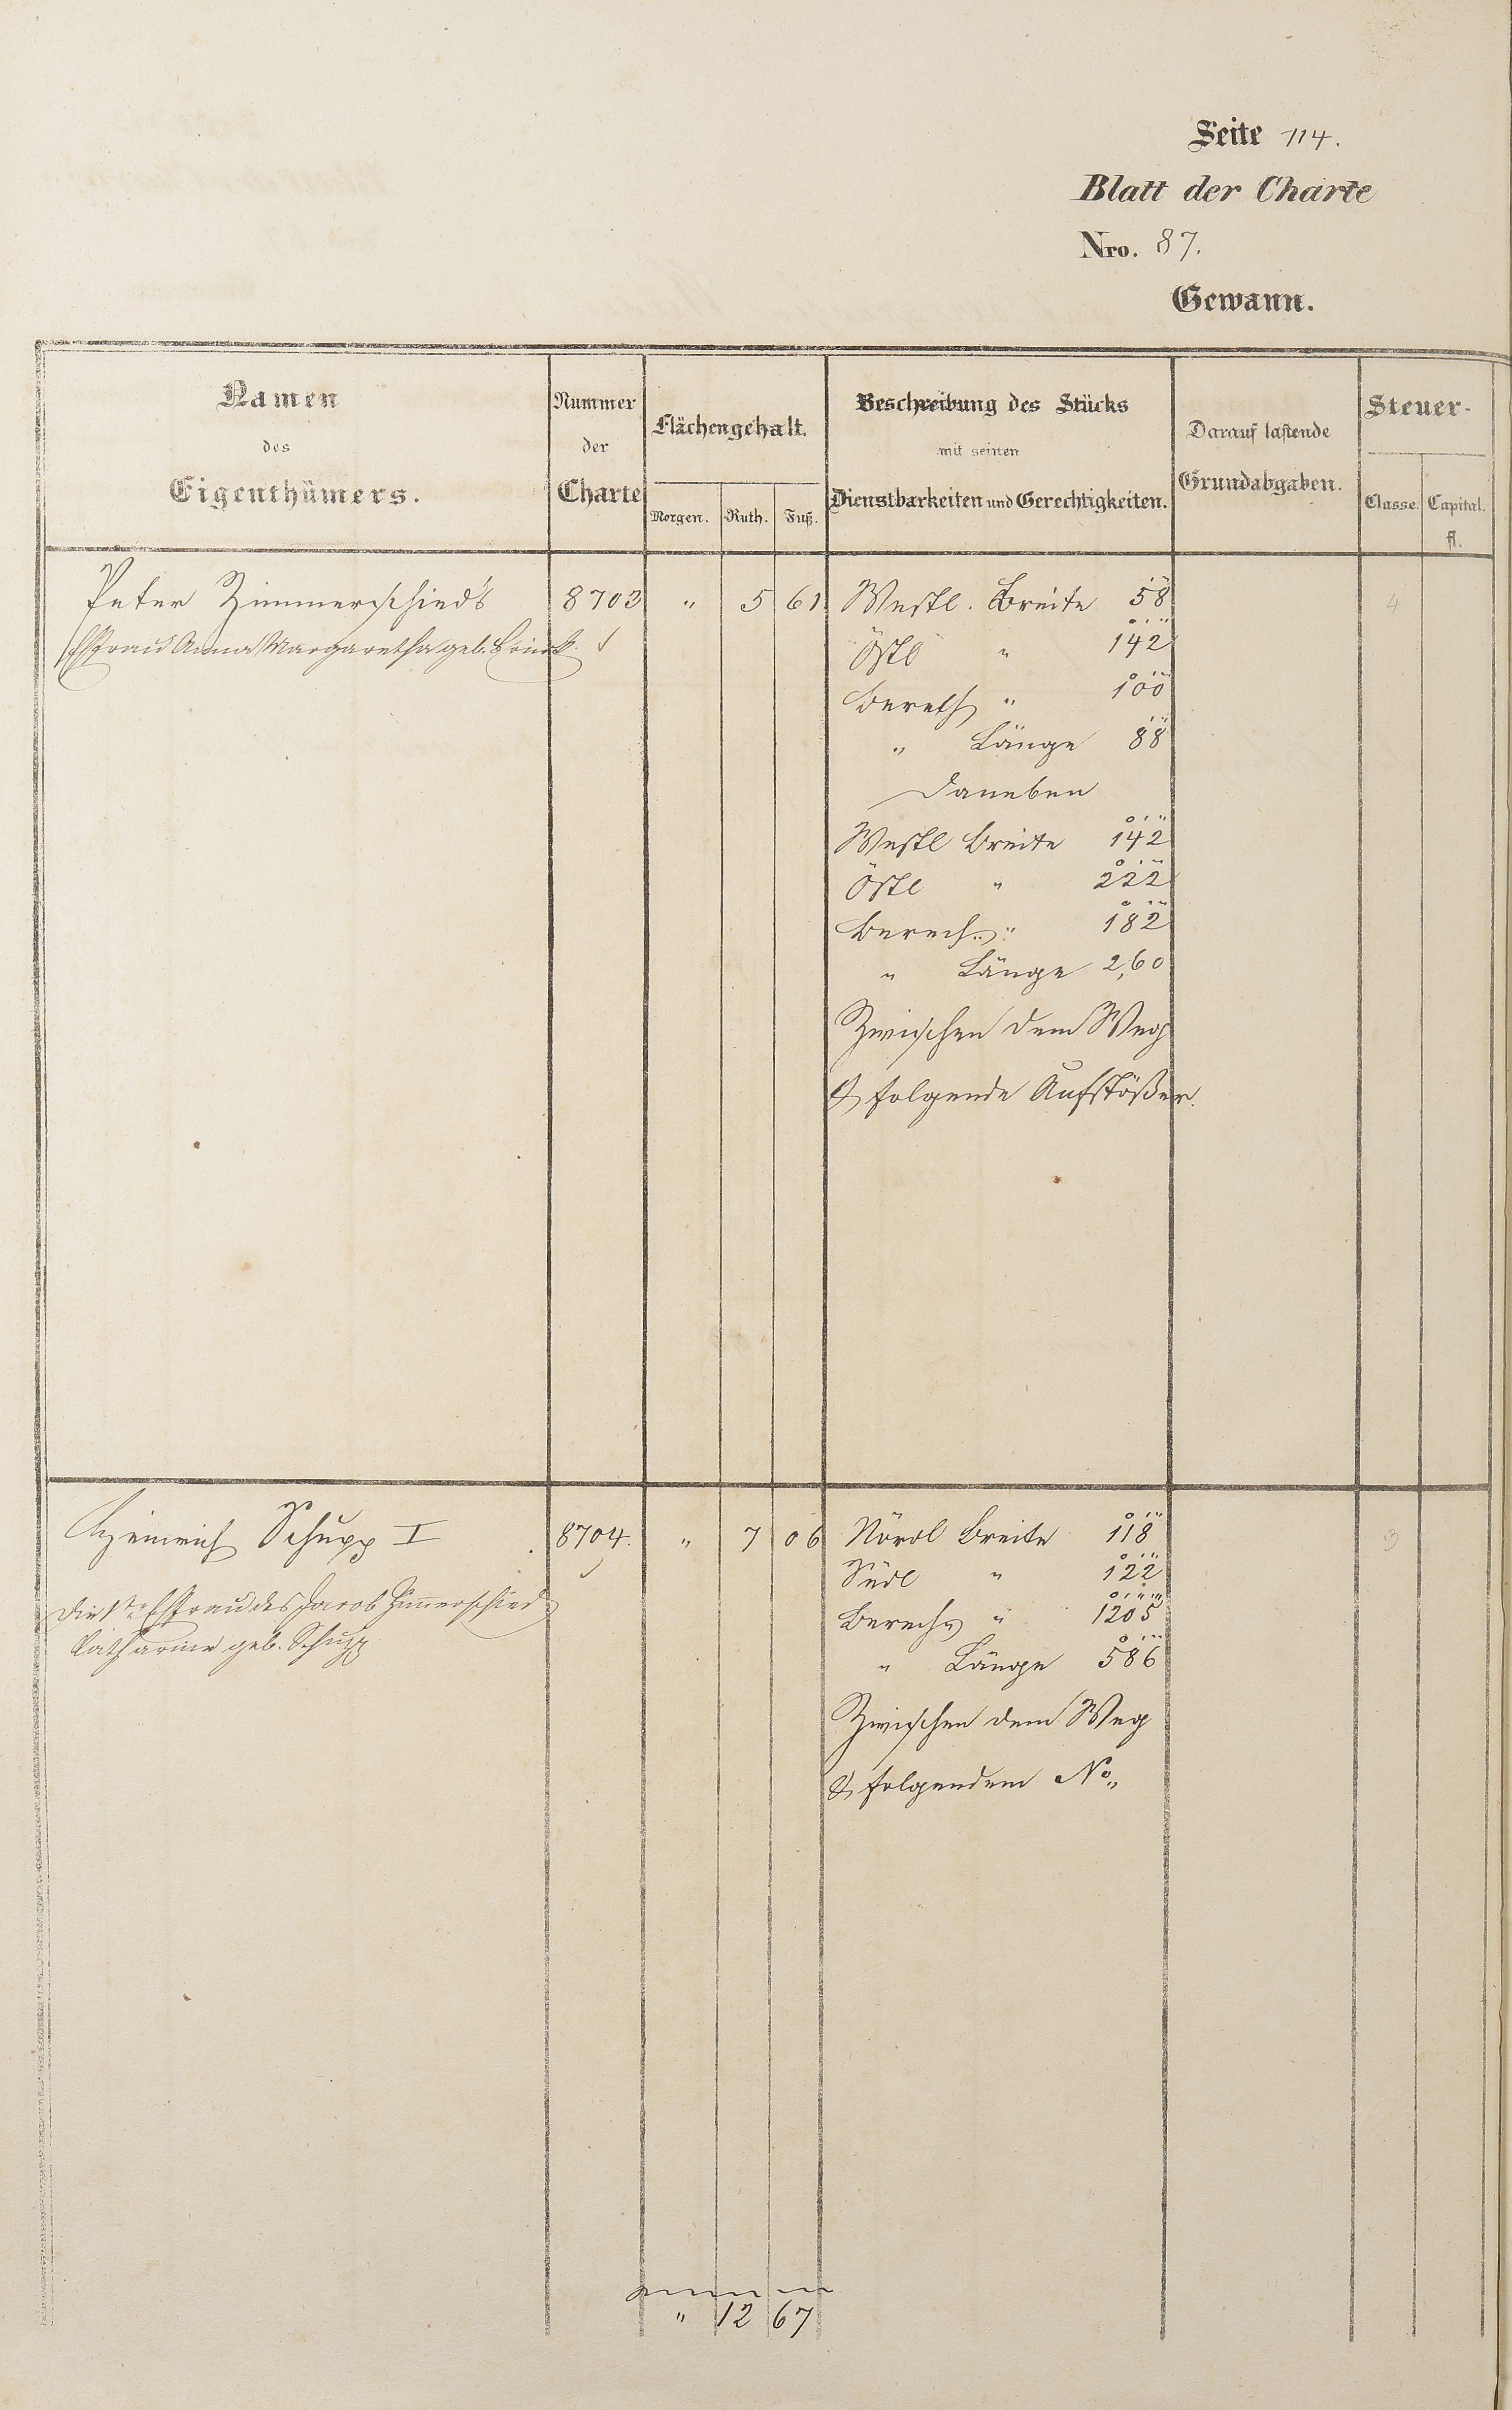 Seite 114.
Blatt der Charte
Nro. 87.
Gewann.
Namen des Eigenthümers.
Nummer der Charte
Flächengehalt.
Morgen. Ruth. Fuß.
Beschreibung des Stücks
mit seinen
Dienstbarkeiten und Gerechtigkeiten.
Darauf lastende
Grundabgaben.
Steuer-
Classe. Capital.
fl.
Peter Zimmerschied's 8703 " 5 61 Westl. Breite 58 4
Ehfrau Anna Margaretha geb.
Östl " 142
Berech " 100
" Länge 88
Daneben
Westl Breite 142
Östl " 222
Berech. " 182
" Länge 2,60
Zwischen dem Weg
& folgende Aufstößer.
Heinrich Schupp I 8704. " 7 06 Nördl Breite 118 3
Südl " 122
Die Ehfrau des Jacob Zimerschied
Berech " 1205
Catharine geb. Schupp
" Länge 586
Zwischen dem Weg
& folgendem No
" 12 67